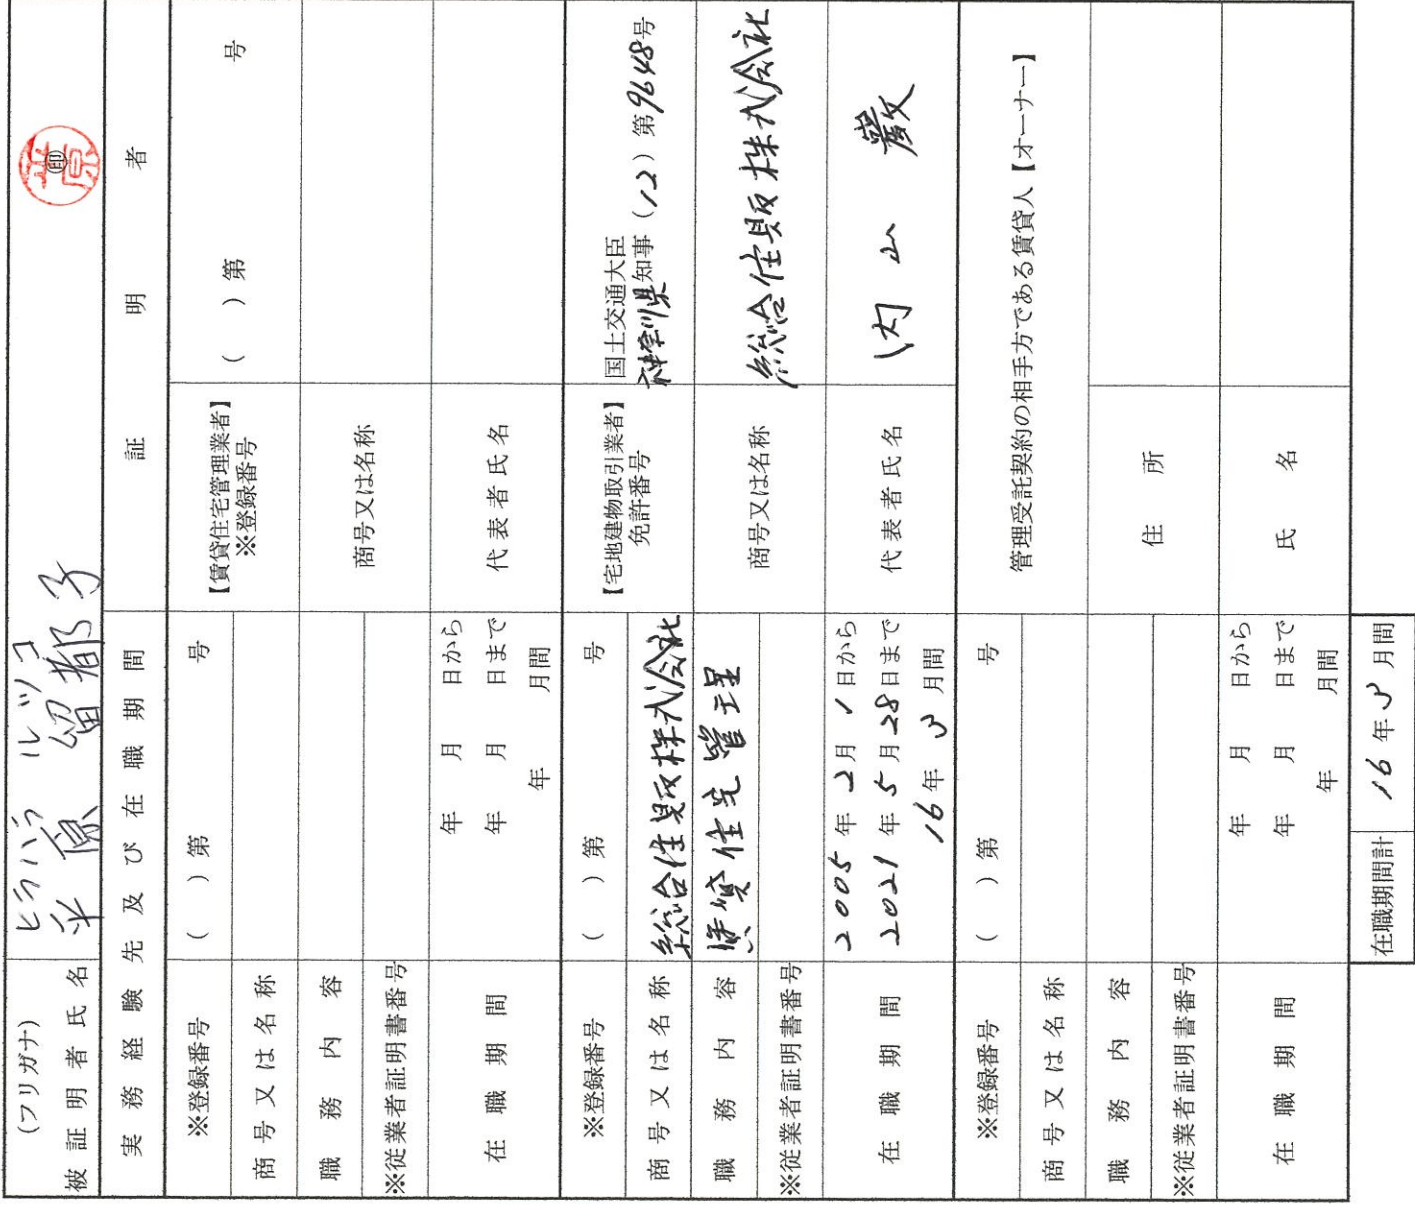 (フリガナ) ヒラハラ ルツコ
被証明者氏名 平原 留都子 ㊞
実務経験先及び在職期間 証明者
※登録番号 ( )第 号 【賃貸住宅管理業者】※登録番号 ( )第 号
商号又は名称 商号又は名称
職務内容
※従業者証明書番号
在職期間 年 月 日から 代表者氏名
年 月 日まで
年 月間
※登録番号 ( )第 号 【宅地建物取引業者】免許番号 国土交通大臣
神奈川県知事(12)第9648号
商号又は名称 総合住販株式会社 商号又は名称 総合住販株式会社
職務内容 賃貸住宅管理
※従業者証明書番号
在職期間 2005年2月1日から 代表者氏名 内山 巌
2021年5月28日まで
16年3月間
※登録番号 ( )第 号 管理受託契約の相手方である賃貸人【オーナー】
商号又は名称
職務内容 住所
※従業者証明書番号
在職期間 年 月 日から 氏名
年 月 日まで
年 月間
在職期間計 16年3月間